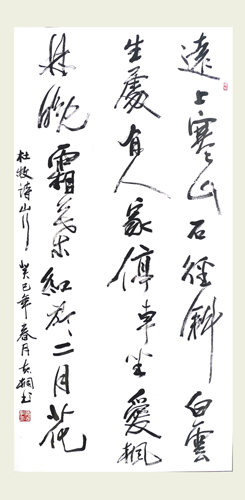 遠上寒山石徑斜白雲
生處有人家停車坐愛楓
林晚霜葉紅於二月花
杜牧詩山行 癸巳年春月